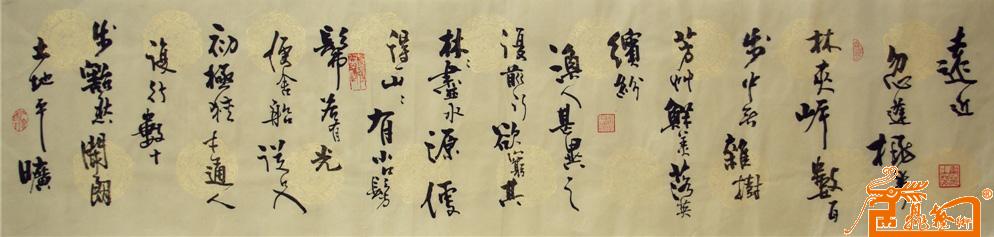 遠近
忽逢桃花
林夾岸數百
步中無雜樹
芳艸鮮美落英
繽紛
漁人甚異之
復前行欲窮其
林〻盡水源便
得一山〻有小口髣
髴若有光
便舍船從口入
初極狹才通人
復行數十
步豁然開朗
土地平曠